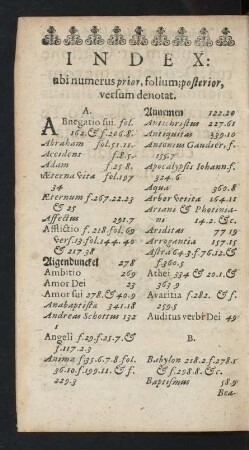 INDEX:
ubi numerus prior, folium; posterior,
versum denotat.
A.
ABnegatio sui. fol.
162. & f. 206.8.
Abraham fol. 51.11.
Accidens f. 8.5.
Adam f. 25 8.
Æterna Vita fol. 197
34
Æternum f. 267.22.23
& 27
Affectus 291.7
Afflictio f. 218. fol. 69
Vers. 13. fol. 144. 40
& 217.38
Aigendunckel 278
Ambitio 269
Amor Dei 23
Amor sui 278. & 40.9
Anabaptista 341.18
Andreas Schottus 132
1
Angeli f. 29. f. 25.7. &
f. 117.2.3
Anima f. 35.6.7.8. fol.
36.10. f. 199.11. & f.
229.3
Annemen 122.20
Antichristus 227.61
Antiquitas 339.10
Antonius Gaudier. f.
155.7
Apocalypsis Iohann. f.
324.6
Aqua 360.8
Arbor Verita 164.11
Ariani & Photinia-
ni 14.2. & c.
Ariditas 77 19
Arrogantia 157.15
Astra 64.3. f. 76.12. &
f. 360.5
Athei 334 & 20.1. &
363 9
Avaritia f. 282. & f.
259.5
Auditus verbi Dei 49
B.
Babylon 218.2. f. 278.5
& f. 298.8. & c.
Baptismus 58.9
Bea-